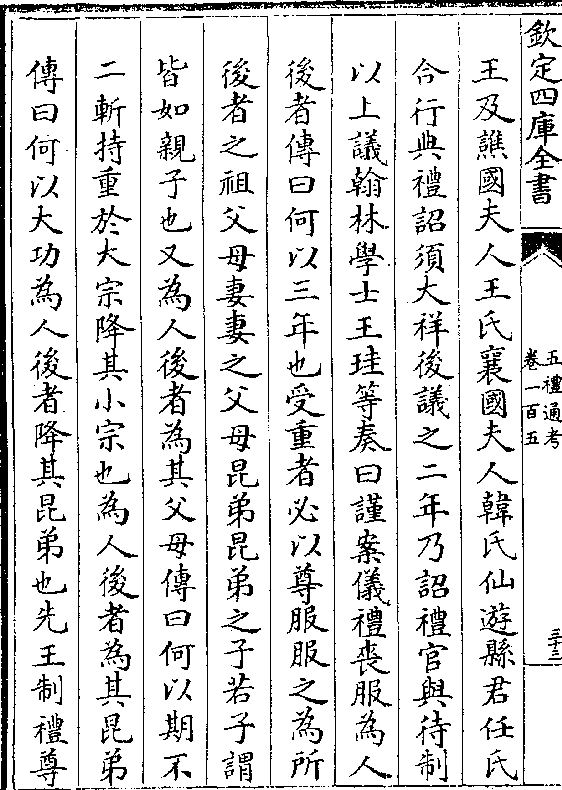 欽定四庫全書
五禮通考
卷一百五
三十三
王及譙國夫人王氏襄國夫人韓氏仙遊縣君任氏
合行典禮詔須大祥後議之二年乃詔禮官與待制
以上議翰林學士王珪等奏曰謹案儀禮喪服為人
後者傳曰何以三年也受重者必以尊服服之為所
後者之祖父母妻妻之父母昆弟昆弟之子若子謂
皆如親子也又為人後者為其父母傳曰何以期不
二斬持重於大宗降其小宗也為人後者為其昆弟
傳曰何以大功為人後者降其昆弟也先王制禮尊